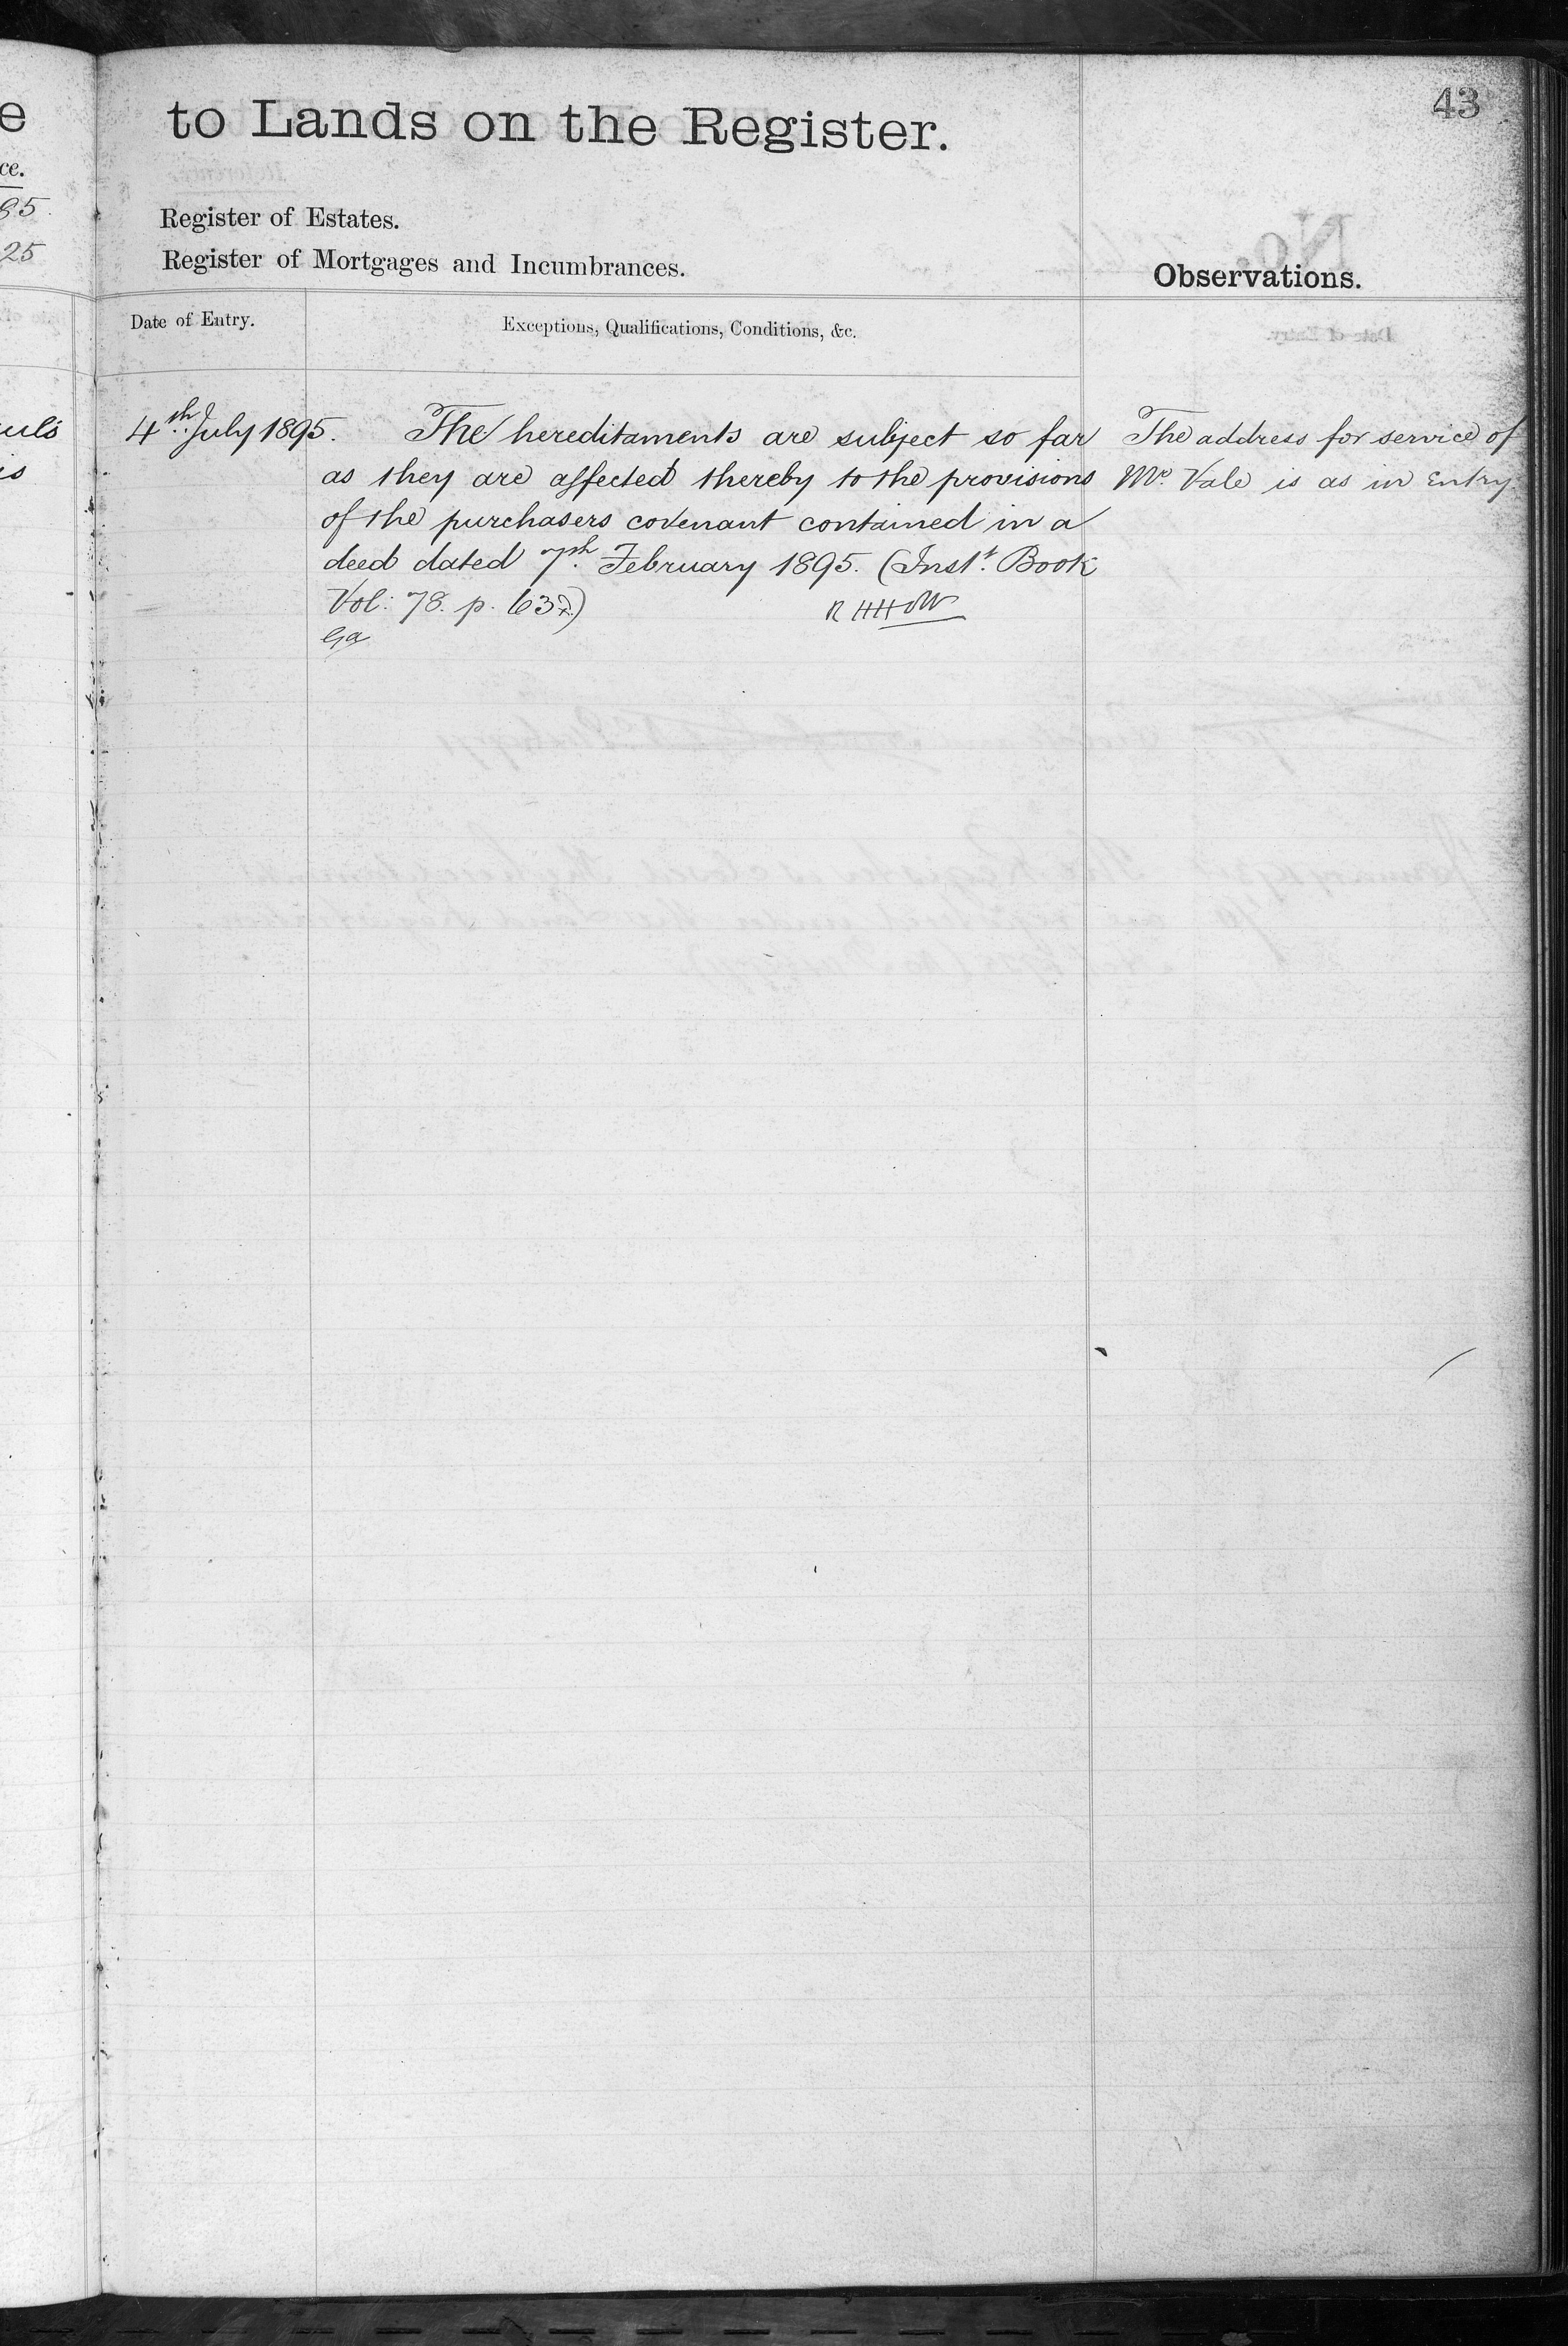 43
to Lands on the Register.
Register of Estates.
Register of Mortgages and Incumbrances.
Observations.
Date of Entry.
Exceptions, Qualifications, Conditions, &c.
4th July 1895.
The hereditaments are subject so far
as they are affected thereby to the provisions
of the purchasers covenant contained in a
deed dated 7th February 1895. (Inst. Book
Vol: 78. p. 637)
The address for service of
Mr. Vale is as in Entry